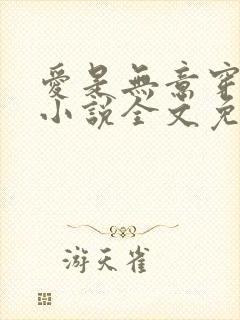 愛是無意穿
小說全文免
游天雀